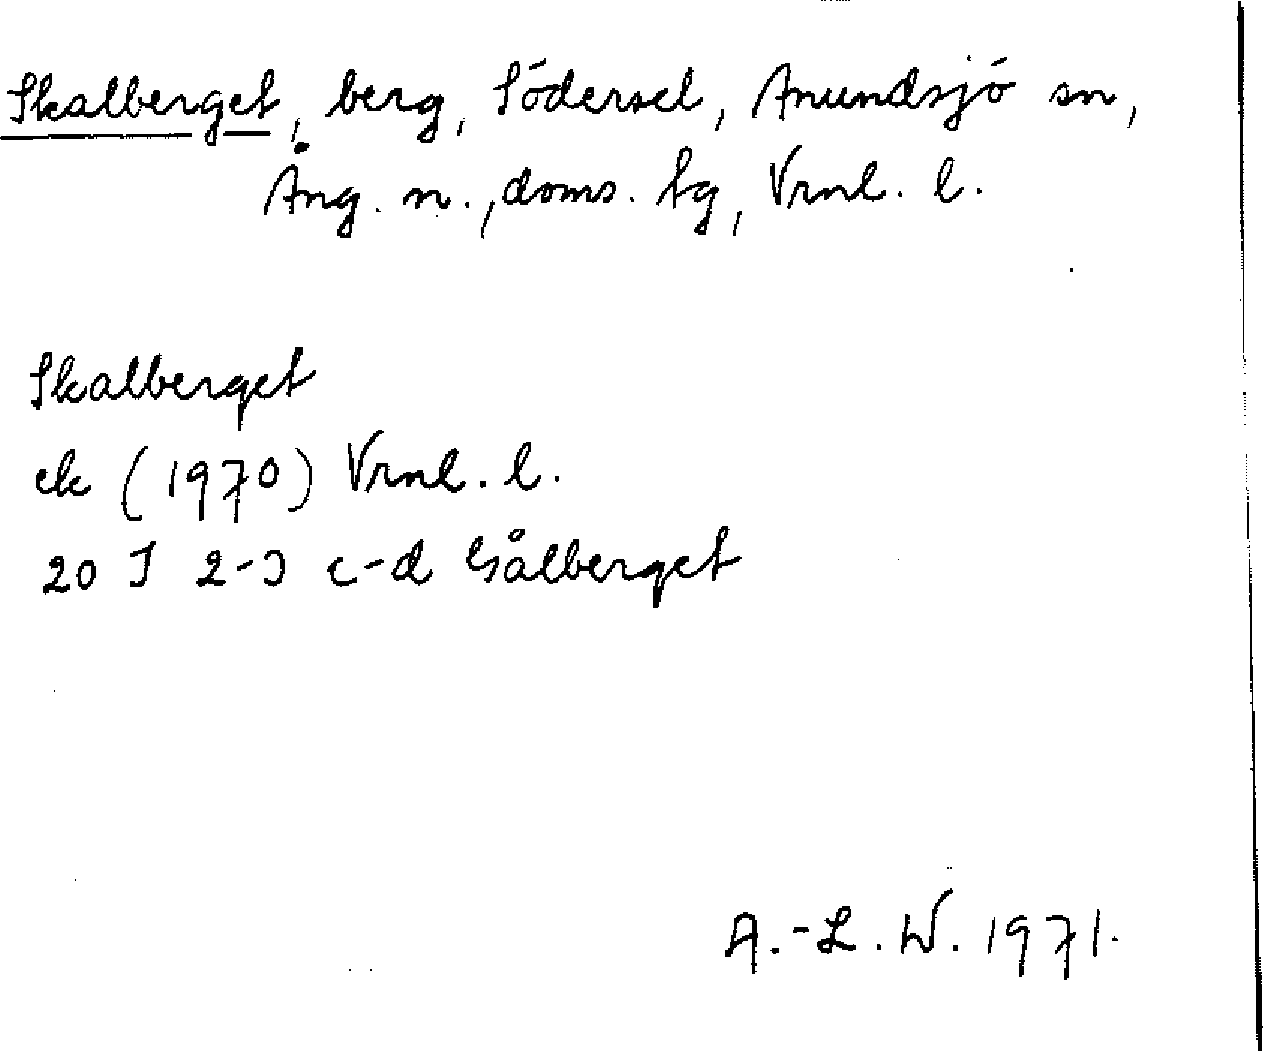 Skalberget, berg, Södersel, Anundsjö sn,
Ång. n., doms. tg, Vrnl. l.
Skalberget
ek (1970) Vrnl. l.
20 J 2-3 c-d Gålberget
A.-L. W. 1971.